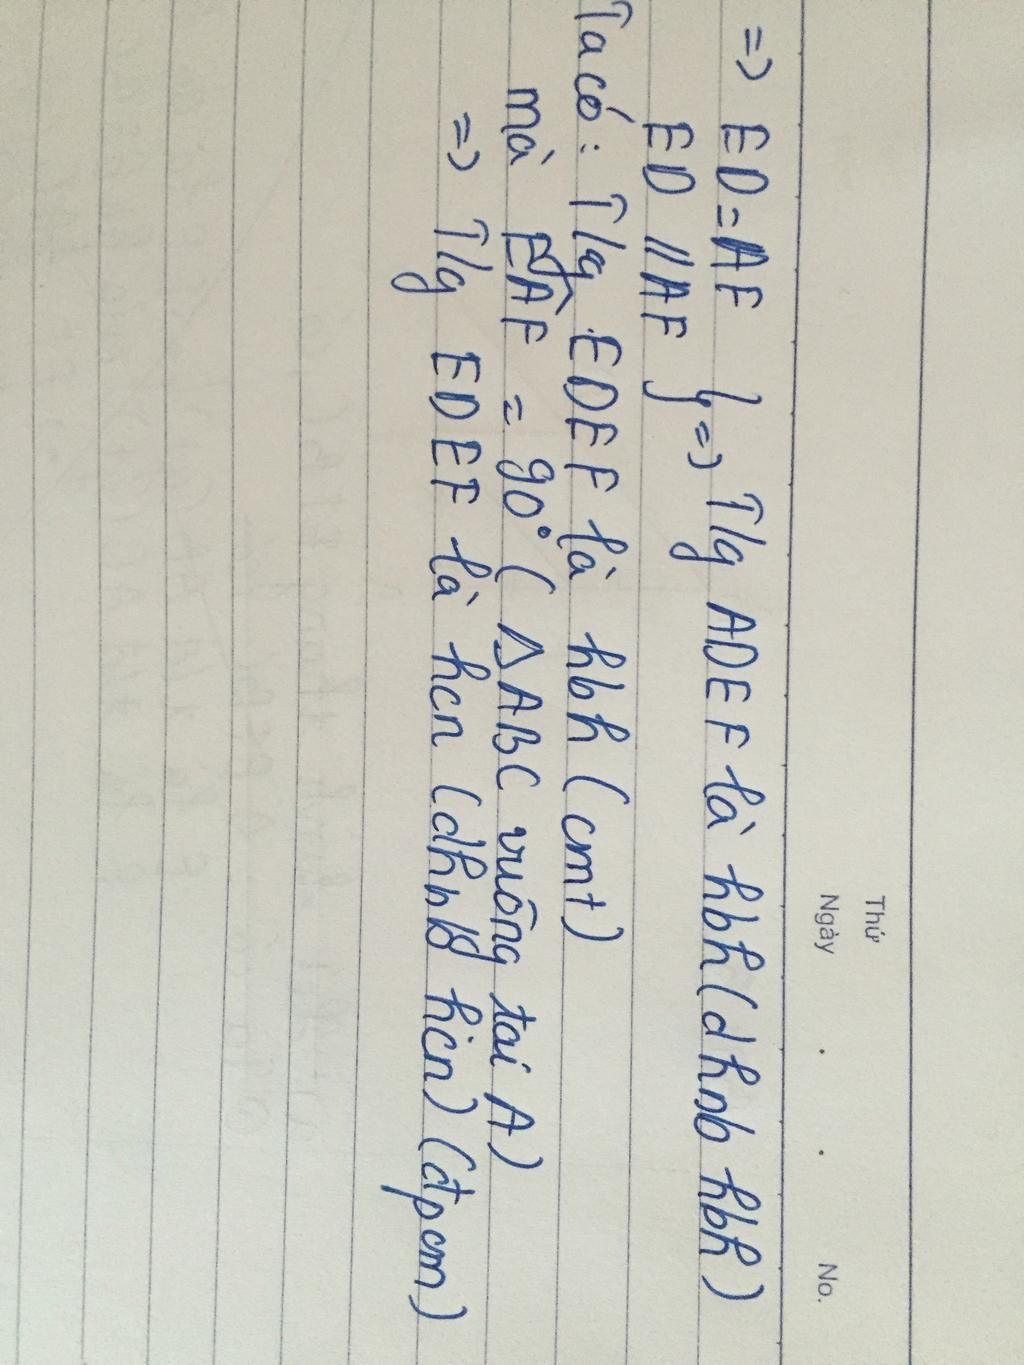 Thứ
Ngày . . No.
=> ED = AF
ED // AF } => T/g ADEF là hbh (dhnb hbh)
Ta có: T/g EDFF là hbh (cmt)
mà EÂF = 90° ( ΔABC vuông tai A)
=> T/g EDEF là hcn (dhnb hcn) (đpcm)